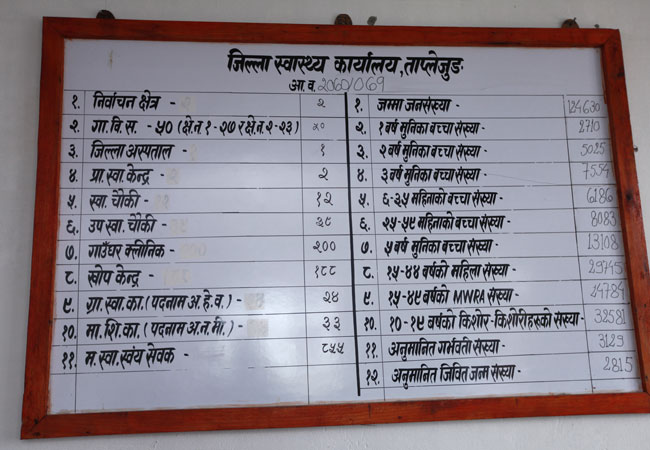 जिल्ला स्वास्थ्य कार्यालय, ताप्लेजुङ
आ.व. २०६०/०६९
१. निर्वाचन क्षेत्र - २
२. गा.वि.स. - ५० (क्षे.नं.१-२७ र क्षे.नं.२-२३) ५०
३. जिल्ला अस्पताल - १
४. प्रा.स्वा.केन्द्र - २
५. स्वा. चौकी - १२
६. उप स्वा. चौकी - ३८
७. गाउँघर क्लीनिक - २००
८. खोप केन्द्र - १८८
९. ग्रा.स्वा.का. (पदनाम अ.हे.व.) - २४
१०. मा.शि.का. (पदनाम अ.न.मी.) - ३३
११. म.स्वा.स्वयं सेवक - ८५५
१. जम्मा जनसंख्या - 124630
२. १ वर्ष मुनिका बच्चा संख्या - 2710
३. २ वर्ष मुनिका बच्चा संख्या - 5025
४. ३ वर्ष मुनिका बच्चा संख्या - 7554
५. ६-३५ महिनाको बच्चा संख्या - 6186
६. २५-५९ महिनाको बच्चा संख्या - 8083
७. ५ वर्ष मुनिका बच्चा संख्या - 13108
८. १५-४४ वर्षको महिला संख्या - 29745
९. १५-४९ वर्षको MWRA संख्या - 24784
१०. १०-१९ वर्षको किशोर-किशोरीहरुको संख्या - 32581
११. अनुमानित गर्भवती संख्या - 3129
१२. अनुमानित जिवित जन्म संख्या - 2815